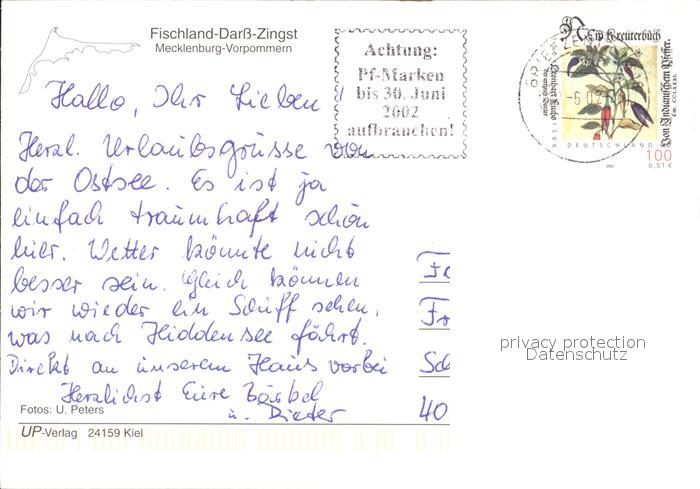 Fischland-Darß-Zingst
Mecklenburg-Vorpommern
Achtung:
Pf-Marken
bis 30. Juni
2002
aufbrauchen!
New Kreuterbuch
Leonhart Fuchs
Von Indianischem Pfeffer.
Cap. CCLXXXI.
DEUTSCHLAND
100
0,51 €
2001
Hallo, Ihr Lieben!
Herzl. Urlaubsgrüsse von
der Ostsee. Es ist ja
einfach traumhaft schön
hier. Wetter könnte nicht
besser sein. Gleich können
wir wieder ein Schiff sehen,
was nach Hiddensee fährt.
Direkt an unserem Haus vorbei
Herzlichst Eure Bärbel
u. Dieter
Fa
Fr
Sc
40
privacy protection
Datenschutz
Fotos: U. Peters
UP-Verlag 24159 Kiel